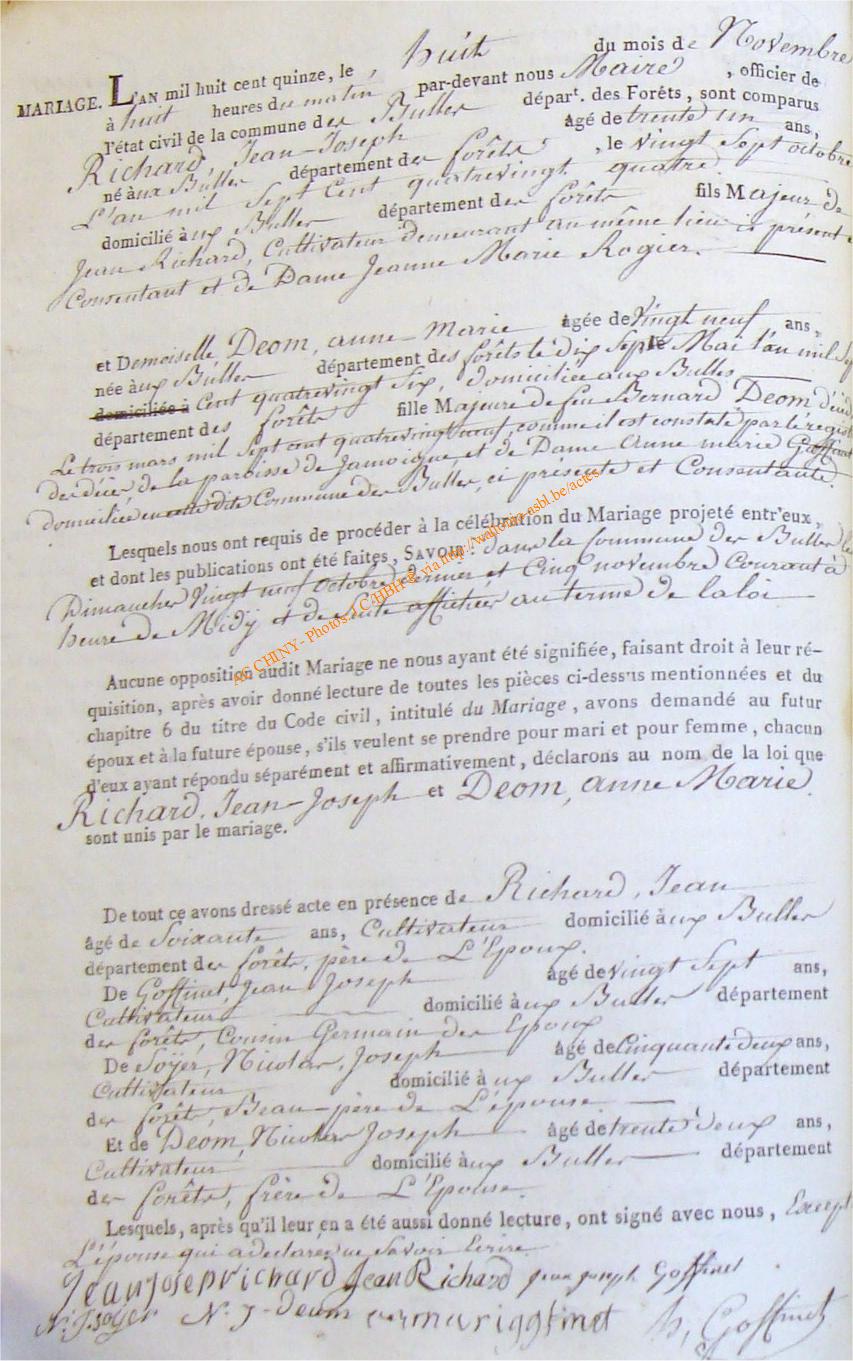 MARIAGE. L'AN mil huit cent quinze, le huit du mois de Novembre
à huit heures du matin, par-devant nous Maire, officier de
l'état civil de la commune des Bulles dépar.t des Forêts, sont comparus
Richard, Jean-Joseph âgé de trente un ans,
né aux Bulles département des forêts, le vingt Sept octobre
L'an mil Sept Cent quatrevingt quatre.
domicilié aux Bulles département des forêts fils Majeur de
Jean Richard, Cultivateur demeurant au même lieu ci présent
Consentant et de Dame Jeanne Marie Rogier.
et Demoiselle, Deom, anne-Marie âgée de Vingt neuf ans,
née aux Bulles département des forêts le dix Sept Mai l'an mil Sep
domiciliée à Cent quatrevingt Six, domiciliée aux Bulles
département des forêts fille Majeure de feu Bernard Deom
Le trois mars mil Sept cent quatrevingt neuf, comme il est constaté par le regist
des décès de la paroisse de Jamoigne et de Dame Anne marie Goffinet
domiciliée en cette dite Commune des Bulles, ci présente et Consentante.
Lesquels nous ont requis de procéder à la célébration du Mariage projeté entr'eux,
et dont les publications ont été faites, SAVOIR: dans la Commune des Bulles les
Dimanches Vingt neuf Octobre dernier et Cinq novembre Courant à
heure de Midy et de Suite afficher au terme de la loi
AG CHINY - Photos via http://wallonia-asbl.be/actes
Aucune opposition audit Mariage ne nous ayant été signifiée, faisant droit à leur ré-
quisition, après avoir donné lecture de toutes les pièces ci-dessus mentionnées et du
chapitre 6 du titre du Code civil, intitulé du Mariage, avons demandé au futur
époux et à la future épouse, s'ils veulent se prendre pour mari et pour femme, chacun
d'eux ayant répondu séparément et affirmativement, déclarons au nom de la loi que
Richard, Jean-Joseph et Deom, anne Marie.
sont unis par le mariage.
De tout ce avons dressé acte en présence de Richard, Jean
âgé de Soixante ans, Cultivateur domicilié aux Bulles
département des forêts, père de L'Epoux.
De Goffinet, Jean Joseph âgé de vingt Sept ans,
Cultivateur domicilié aux Bulles département
des forêts, Cousin Germain des Epoux
De Soyer, Nicolas, Joseph âgé de Cinquante deux ans,
Cultivateur domicilié aux Bulles département
des forêts, Beau-père de L'épouse.
Et de Deom, Nicolas Joseph âgé de trente deux ans,
Cultivateur domicilié aux Bulles département
des forêts, frère de L'Epouse.
Lesquels, après qu'il leur en a été aussi donné lecture, ont signé avec nous, Except
L'épouse qui a declaré ne Savoir Ecrire
Jean joseprichard Jean Richard jean joseph Goffinet
N: J. soyer N: J- Deom Goffinet